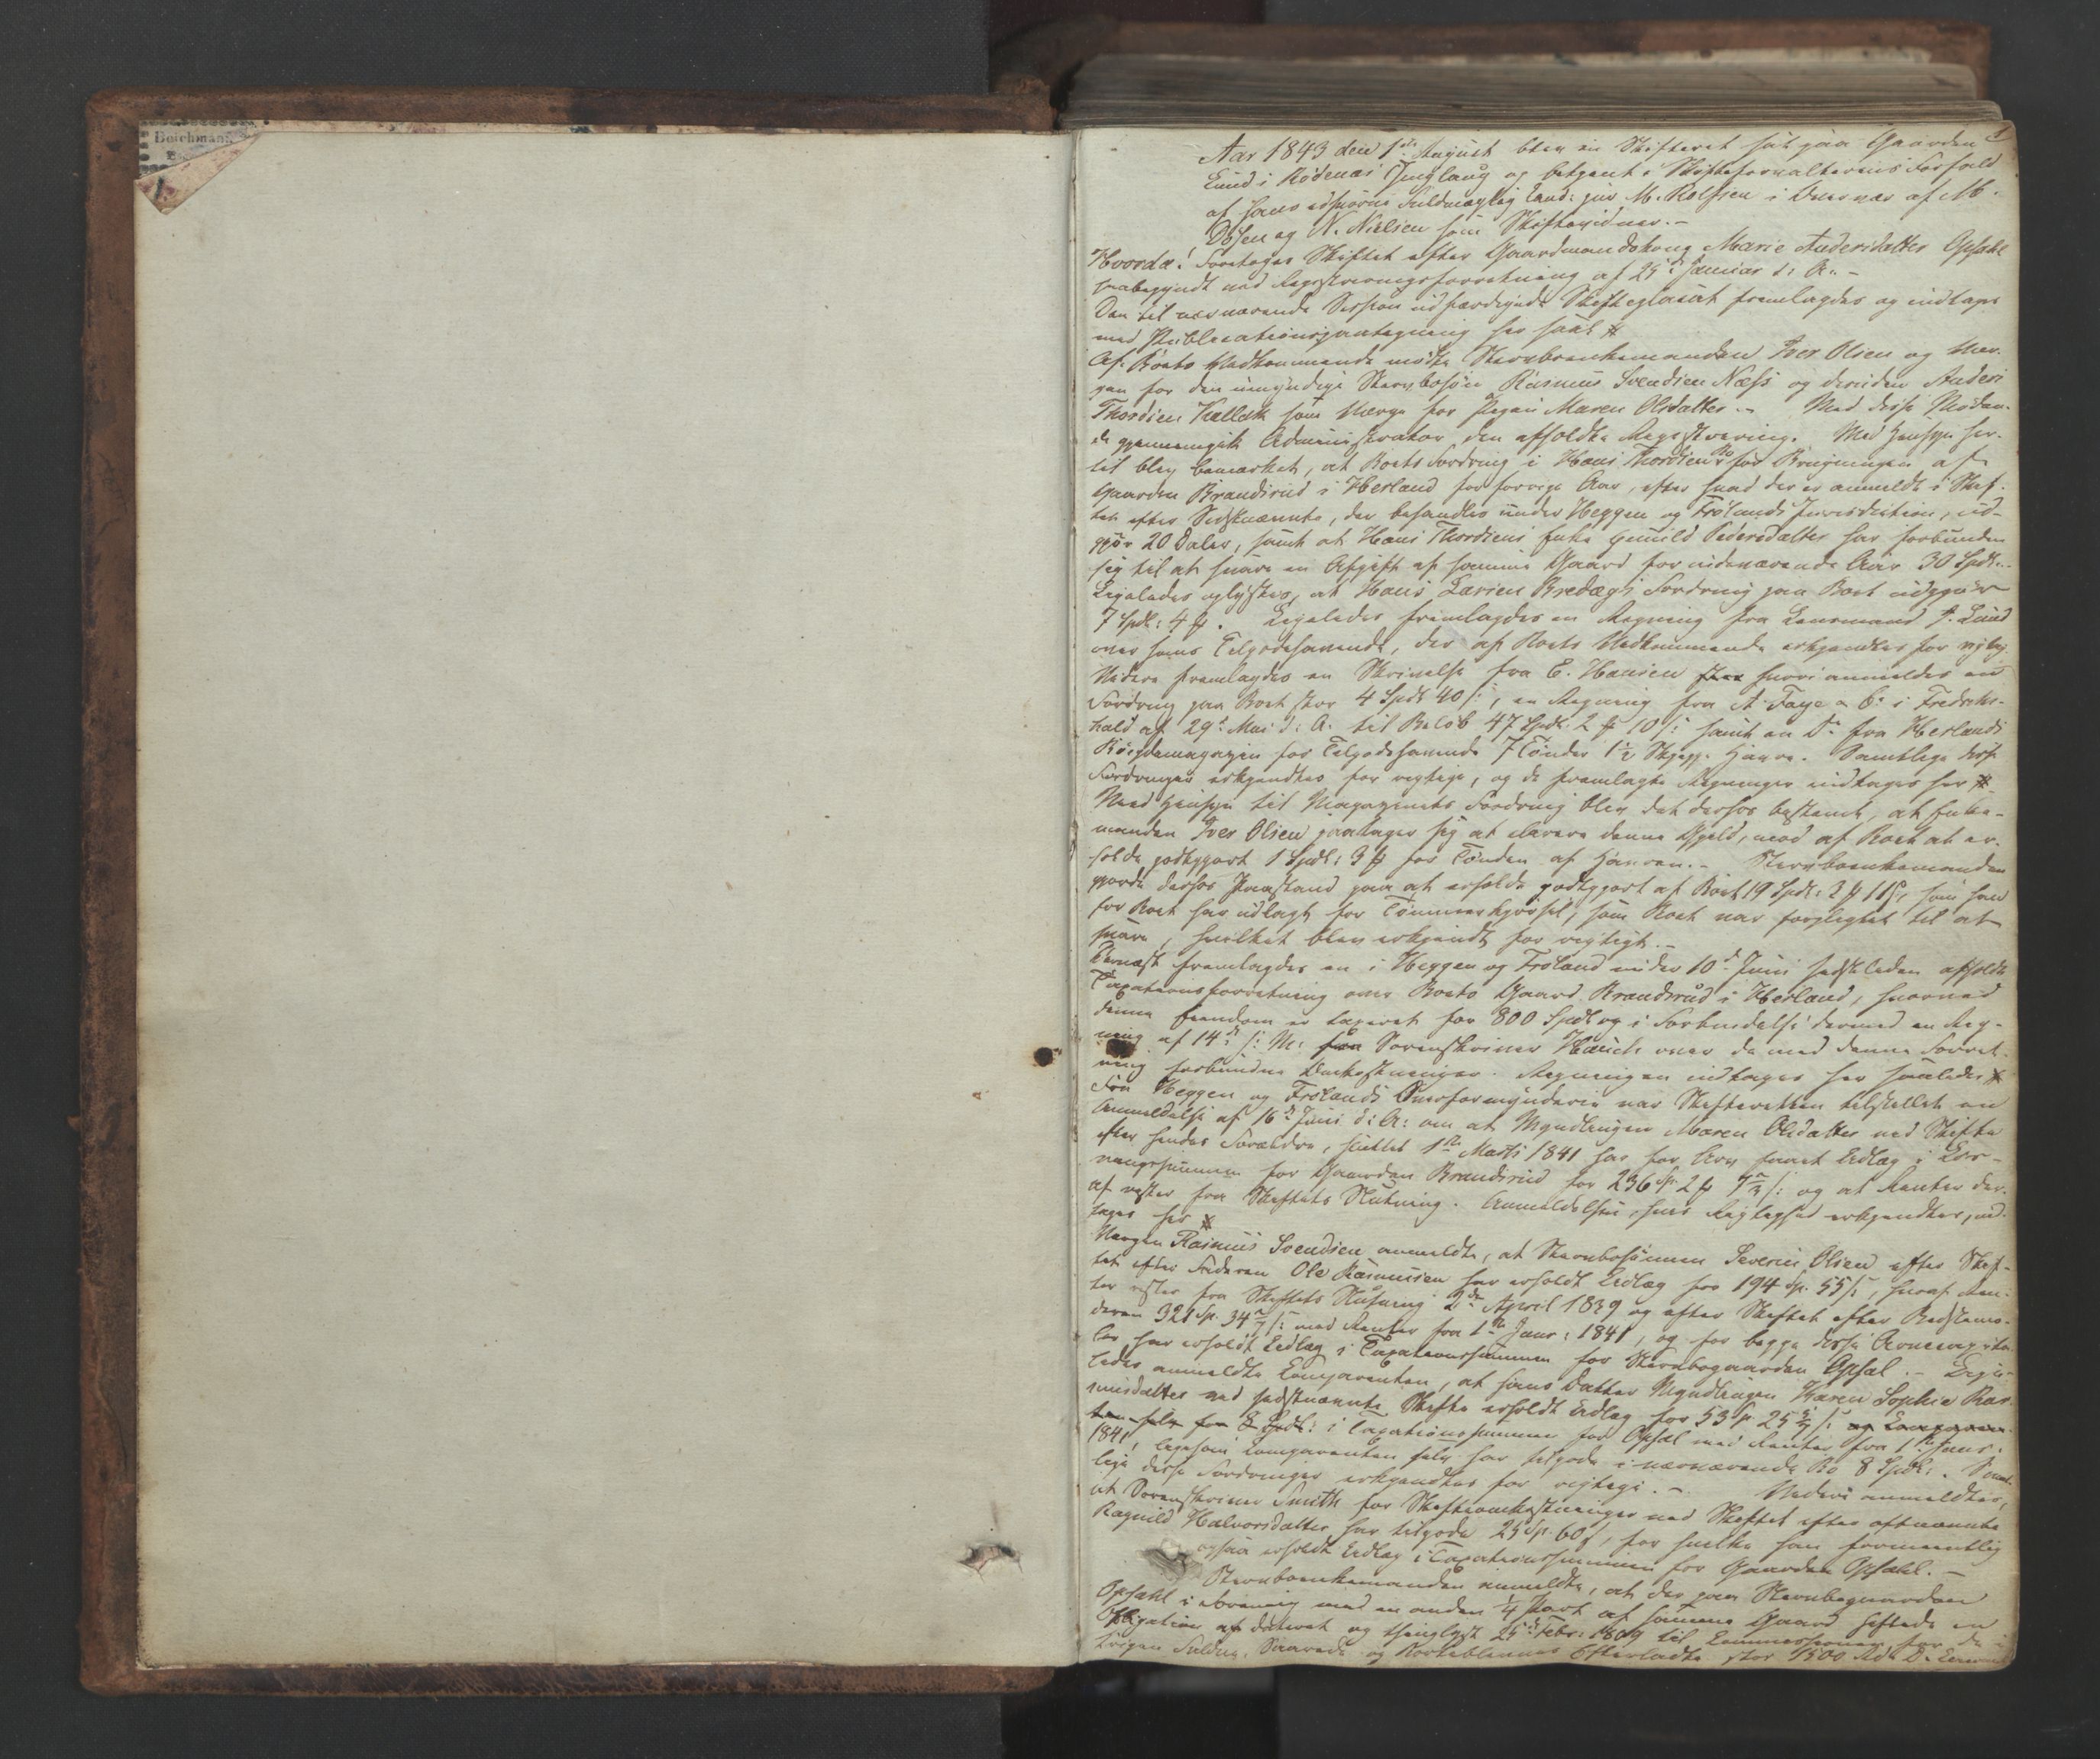 Deichmann
1.
1
Aar 1843 den 1ste August blev en Skifteret sat paa Gaarden
Lund i Rødenæs Thinglaug og betjent i Skifteforvalterens Forfald
af hans edsvorne Fuldmægtig Cand: jur. M. Rolfsen i Overvær af M.
Olsen og N. Nielsen som Skiftevidner.-
Hvorda! Foretoges Skiftet efter Gaardmandskone Marie Andersdatter Opsahl
paabegyndt ved Registreringsforretning af 25de Januar d: A:-
Den til nærværende Session udfærdigede Skifteplacat fremlagdes og indtages
med Publicationspaategning her saal:
Af Boets Vedkommende mødte Stervboenkemanden Iver Olsen og Vær-
gen for den umyndige Stervbosøn Rasmus Svendsen Næss og desuden Anders
Thordsen Kallak som Værge for Pigen Maren Olsdatter.- Med disse Mødende
gjennemgik Administrator den afholdte Registrering. Med Hensyn her-
til blev bemærket, at Boets Fordring i Hans Thordsens Bo for Brugningen af
Gaarden Brandsrud i Herland for forrige Aar, efter hvad der er anmeldt i Skif-
tet efter Sidstnævnte, der behandles under Heggen og Frølands Jurisdiction, ud-
gjør 20 Daler, samt at Hans Thordsens Enke Gunild Pedersdatter har forbunden
sig til at svare en Afgift af samme Gaard for indeværende Aar 30 Spdlr.
Ligeledes oplystes, at Hans Larsen Bredægs Fordring paa Boet udgjør
7 Spdl: 4 ß. Ligeledes fremlagdes en Regning fra Lensmand P. Lund
over hans Tilgodehavende, der af Boets Vedkommende erkjendtes for rigtig.
Videre fremlagdes en Skrivelse fra E. Hansen hvori anmeldes en
Fordring paa Boet stor 4 Spdl 40 ß, en Regning fra A. Faye & Co i Fredriks-
hald af 29de Mai d: A: til Beløb 47 Spdl. 2 ß 10 ß samt en Do fra Herlands
Bøigdemagazin for Tilgodehavende 7 Tønder 1½ Skjepp. Havre. Samtlige disse
Fordringer erkjendtes for rigtige, og de fremlagte Regninger indtages her
Med Hensyn til Magazinets Fordring blev det derhos bestemt, at Enke-
manden Iver Olsen paatager sig at klarere denne Gjeld, mod af Boet at er-
holde godtgjort 1 Spdl: 3 ß for Tønden af Havren.- Stervboenkemanden
gjorde derhos Paastand paa at erholde godtgjort af Boet 19 Spdl: 3 ß 16 ß, som han
for Boet har udlagt for Tømmerkjørsel, som Boet var forpligtet til at
svare, hvilket blev erkjendt for rigtigt.-
Dernæst fremlagdes en i Heggen og Frøland under 10de Juni sidstleden afholdt
Taxationsforretning over Boets Gaard Brandsrud i Herland, hvorved
denne Eiendom er taxeret for 800 Spdl og i Forbindelse dermed en Reg-
ning af 14de s: M: fra Sorenskriver Hauch over de med denne Forret-
ning forbundne Omkostninger. Regningen indtages her saaledes
Fra Heggen og Frølands Overformynderie var Skifteretten tilstillet en
Anmeldelse af 16de Juni d: A: om at Myndlingen Maren Olsdatter ved Skifte
efter hendes Forældre, sluttet 1ste Marts 1841 har for Arv faaet Udlæg i Løs-
ningssummen for Gaarden Brandsrud for 236 Sp. 2 ß og at Renter der-
af rester fra Skiftets Slutning. Anmeldelsen, hvis Rigtighed erkjendtes, ind-
tages her
Værgen Rasmus Svendsen anmeldte, at Stervbosønnen Severin Olsen efter Skif-
tet efter Faderen Ole Rasmussen har erholdt Udlæg for 194 Sp. 55 ß, hvoraf Ren-
ter rester fra Skiftets Slutning 2den April 1839 og efter Skiftet efter Bedstemo-
deren 321 Sp. 34 ß med Renter fra 1ste Janr: 1841, og for begge disse Arvecapita-
ler har erholdt Udlæg i Taxationssummen for Stervbogaarden Opsal.- Lige-
ledes anmeldte Comparenten, at hans Datter Myndlingen Karen Sophie Ras-
musdatter ved sidstnævnte Skifte erholdt Udlæg for 53 Sp. 25 ß og Comparen-
ten selv for 8 Spdl: i Taxationssummen for Opsal med Renter fra 1ste Janr:
1841, ligesom Comparenten selv har tilgode i nærværende Bo 8 Spdl:. Samt-
lige disse Fordringer erkjendtes for rigtige.- Videre anmeldtes,
at Sorenskriver Smith for Skifteomkostninger ved Skiftet efter oftnævnte
Ragnild Halvorsdatter har tilgode 25 Sp. 60 ß, for hvilke han formeentlig
ogsaa erholdt Udlæg i Taxationssummen for Gaarden Opsahl.-
Stervboenkemanden anmeldte, at der paa Stervbogaarden
Opsahl i Forening med en anden ¼ Part af samme Gaard heftede en
Obligation af dateret og thinglyst 25de Febr: 1809 til Commissionen for de i
Krigen Faldne, Saarede og Borteblevnes Efterladte, stor 1500 Rd. D.